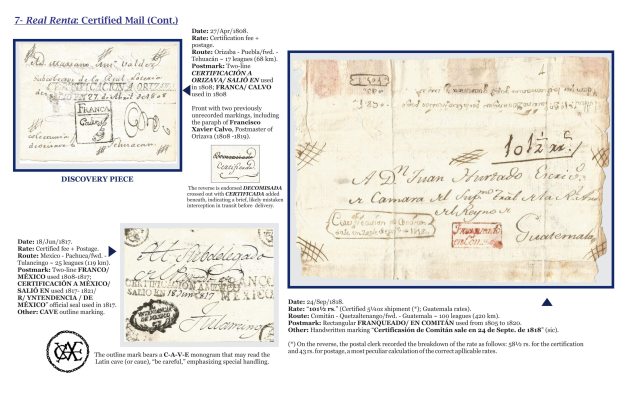 7- Real Renta: Certified Mail (Cont.)
Dn. Mariano
CERTIFICACIÓN A ORIZAVA
SALIÓ EN 27 de Abril de 1808
FRANCA
Calvo
Tehuacan
DISCOVERY PIECE
Date: 27/Apr/1808.
Rate: Certification fee +
postage.
Route: Orizaba - Puebla/fwd. -
Tehuacán ~ 17 leagues (68 km).
Postmark: Two-line
CERTIFICACIÓN A
ORIZAVA/ SALIÓ EN used
in 1808; FRANCA/ CALVO
used in 1808
Front with two previously
unrecorded markings, including
the paraph of Francisco
Xavier Calvo, Postmaster of
Orizava (1808 -1819).
Certificada
The reverse is endorsed DECOMISADA
crossed out with CERTIFICADA added
beneath, indicating a brief, likely mistaken
interception in transit before delivery.
Date: 18/Jun/1817.
Rate: Certified fee + Postage.
Route: Mexico - Pachuca/fwd. -
Tulancingo ~ 25 leagues (119 km).
Postmark: Two-line FRANCO/
MÉXICO used 1808-1817;
CERTIFICACIÓN A MÉXICO/
SALIÓ EN used 1817- 1821/
R/ YNTENDENCIA / DE
MÉXICO" official seal used in 1817.
Other: CAVE outline marking.
Al Subdelegado
CERTIFICACIÓN A MÉXICO
FRANCO
SALIÓ EN 18 Junio 1817
MÉXICO
INTENDENCIA
DE MEXICO
Tulancingo
CAVE
The outline mark bears a C-A-V-E monogram that may read the
Latin cave (or caue), “be careful,” emphasizing special handling.
101½ rs.
A Dn. Juan Hurtado
Camara
el Reyno
Guatemala
Certificación de Comitán
sale en 24 de Septe. de 1818
FRANQUEADO
EN COMITÁN
Date: 24/Sep/1818.
Rate: "101½ rs." (Certified 5½oz shipment (*); Guatemala rates).
Route: Comitán - Quetzaltenango/fwd. - Guatemala ~ 100 leagues (420 km).
Postmark: Rectangular FRANQUEADO/ EN COMITÁN used from 1805 to 1820.
Other: Handwritten marking "Certificación de Comitán sale en 24 de Septe. de 1818" (sic).
(*) On the reverse, the postal clerk recorded the breakdown of the rate as follows: 58½ rs. for the certification
and 43 rs. for postage, a most peculiar calculation of the correct apllicable rates.